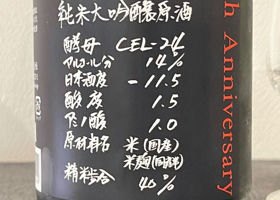 純米大吟醸原酒
酵母 CEL-24
アルコール分 14%
日本酒度 -11.5
酸度 1.5
アミノ酸 1.0
原材料名 米(国産)
米麹(国産米)
精米歩合 40%
th Anniversary